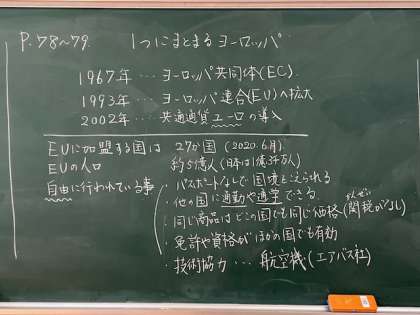 P.78～79. 1つにまとまるヨーロッパ.
1967年…ヨーロッパ共同体(EC).
1993年…ヨーロッパ連合(EU)へ拡大
2002年…共通通貨ユーロの導入
EUに加盟する国は 27か国 (2020.6月)
EUの人口 約5億人(日本は1億
自由に行われている事
・パスポートなしで国境をこえられる
・他の国に通勤や通学できる.
・同じ商品はどこの国でも同じ価格(関税がなし
かんぜい
・免許や資格がほかの国でも有効
・技術協力…航空機(エアバス社)